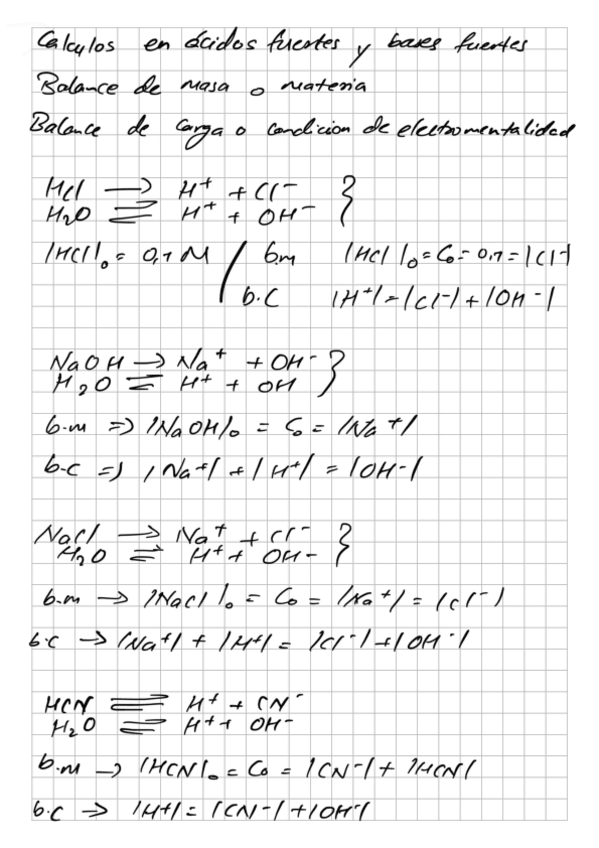 Calculos en ácidos fuertes y bases fuertes
Balance de masa o materia
Balance de carga o condicion de electromentalidad
HCl → H⁺ + Cl⁻ }
H₂O ⇌ H⁺ + OH⁻
|HCl|₀ = 0,1 M / b.m |HCl|₀ = C₀ = 0,1 = |Cl⁻|
b.C |H⁺| = |Cl⁻| + |OH⁻|
NaOH → Na⁺ + OH⁻ }
H₂O ⇌ H⁺ + OH
b.m => |NaOH|₀ = C₀ = |Na⁺|
b.c => |Na⁺| + |H⁺| = |OH⁻|
NaCl → Na⁺ + Cl⁻ }
H₂O ⇌ H⁺ + OH⁻
b.m → |NaCl|₀ = C₀ = |Na⁺| = |Cl⁻|
b.c → |Na⁺| + |H⁺| = |Cl⁻| + |OH⁻|
HCN ⇌ H⁺ + CN⁻
H₂O ⇌ H⁺ + OH⁻
b.m → |HCN|₀ = C₀ = |CN⁻| + |HCN|
b.c → |H⁺| = |CN⁻| + |OH⁻|